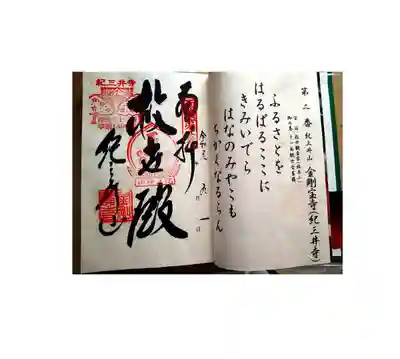 第二番 紀三井山 金剛宝寺(紀三井寺)
ふるさとを
はるばるここに
きみいでら
はなのみやこも
ちかくなるらん
奉拝
令和元 九月 一日
救世殿
紀三井寺
紀三井寺